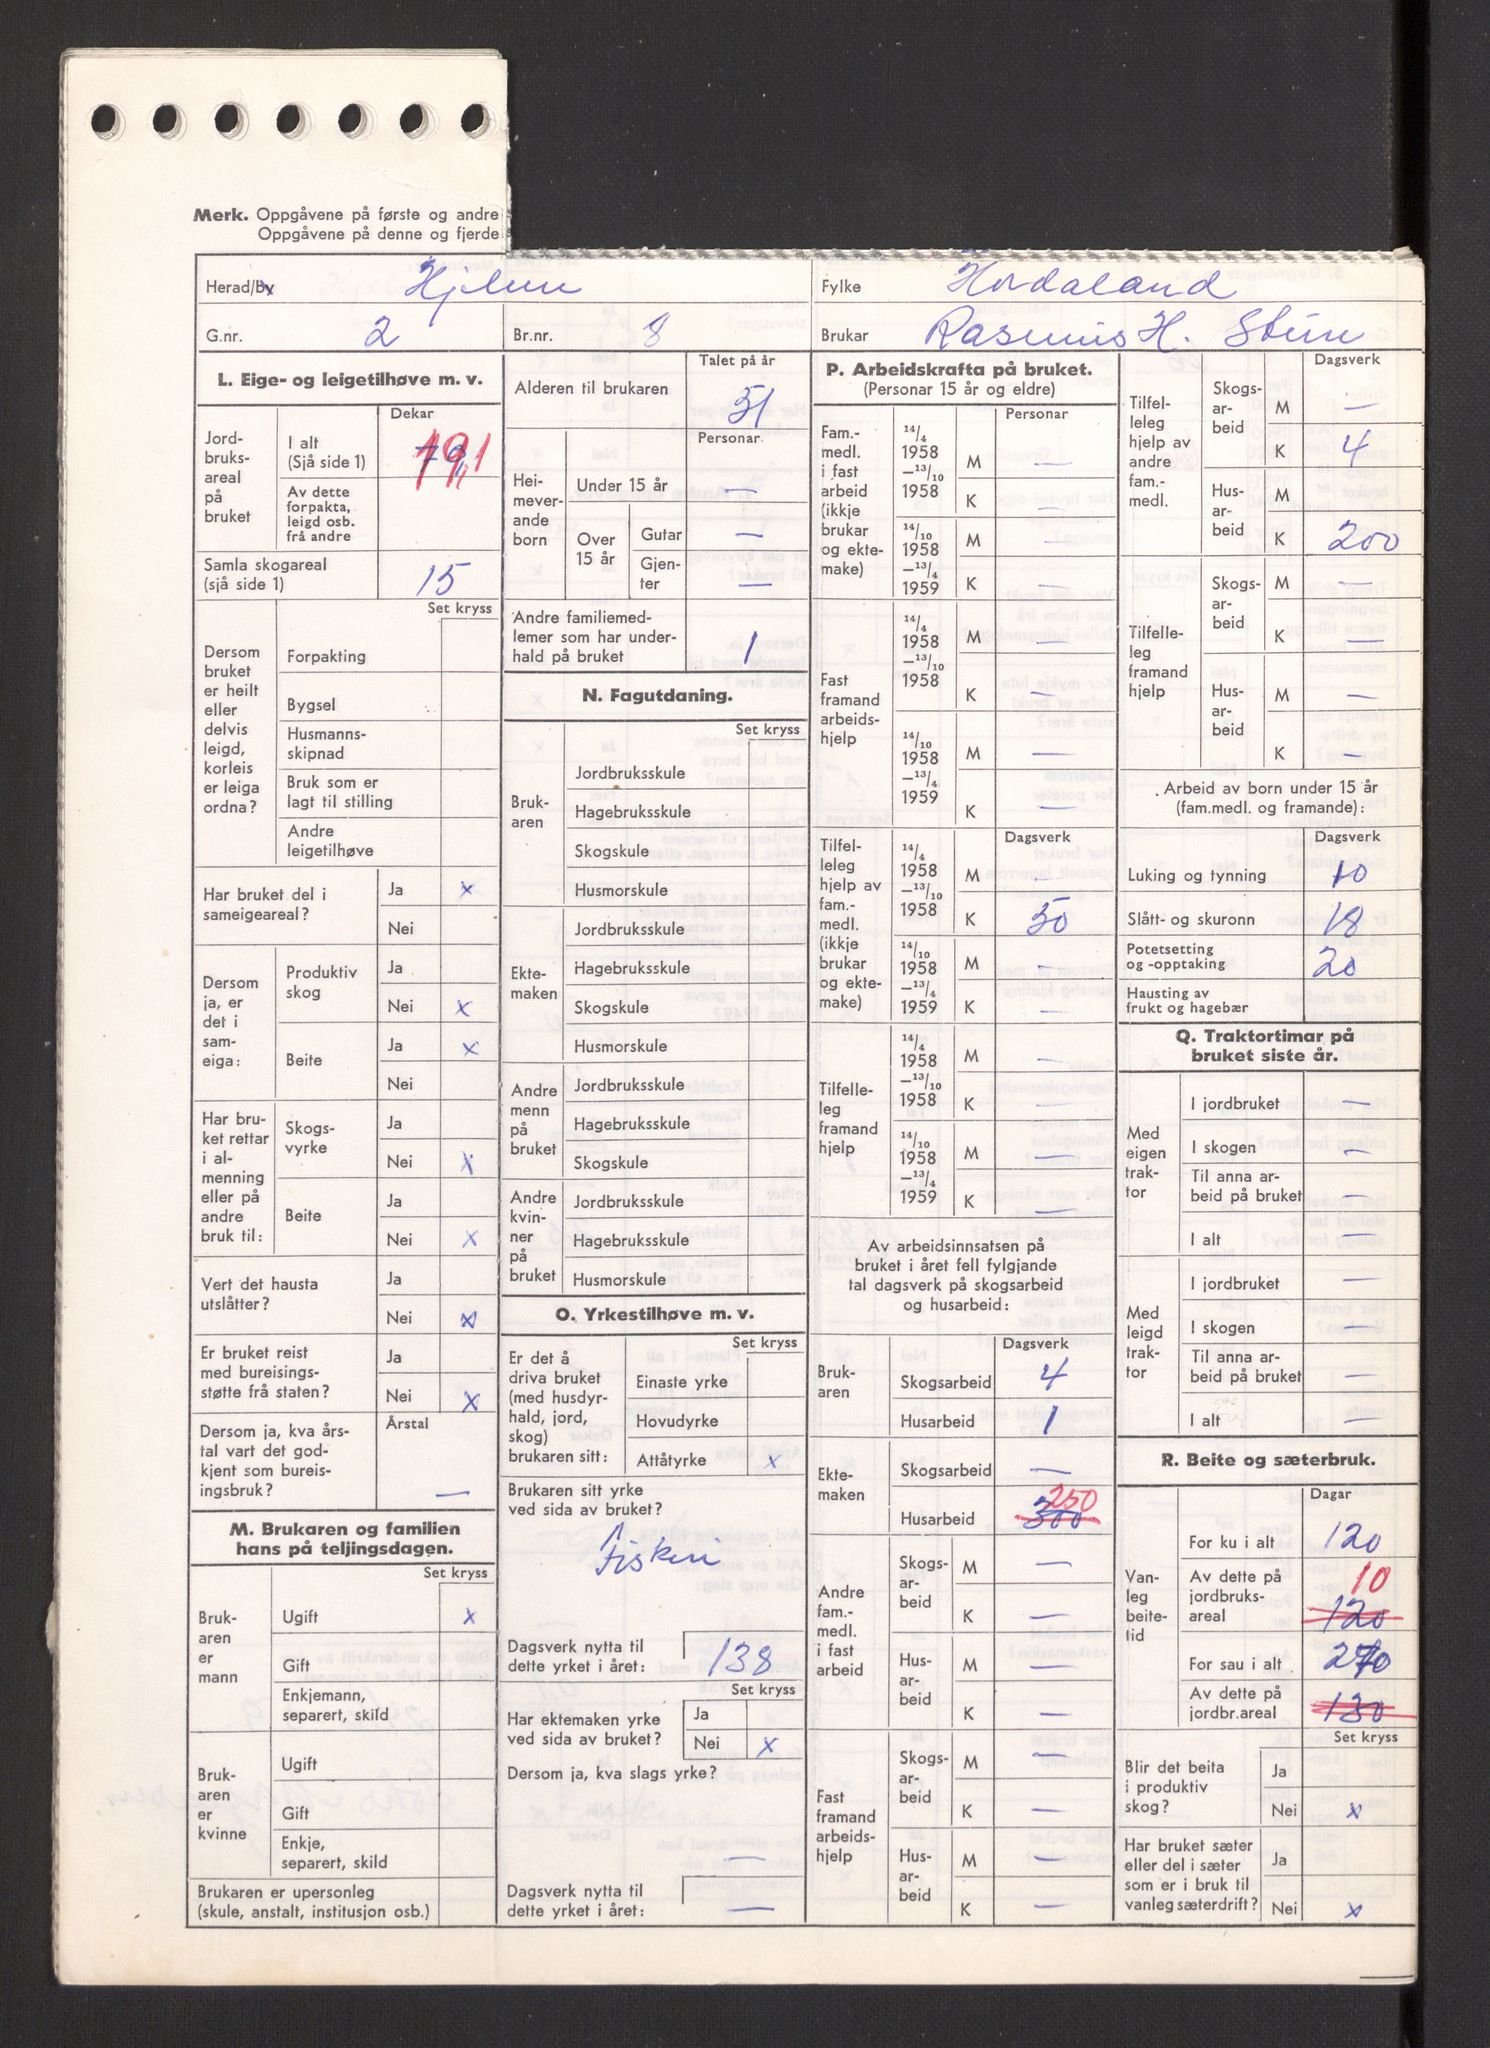 Merk. Oppgåvene på første og andre
Oppgåvene på denne og fjerde
Herad/By Hjelme
Fylke Hordaland
G.nr. 2
Br.nr. 8
Brukar Rasmus H. Steen
L. Eige- og leigetilhøve m. v.
Dekar
Jord-
bruks-
areal
på
bruket
I alt
(Sjå side 1)
Av dette
forpakta,
leigd osb.
frå andre
Samla skogareal
(sjå side 1) 15
Set kryss
Dersom
bruket
er heilt
eller
delvis
leigd,
korleis
er leiga
ordna?
Forpakting
Bygsel
Husmanns-
skipnad
Bruk som er
lagt til stilling
Andre
leigetilhøve
Har bruket del i
sameigeareal?
Ja x
Nei
Dersom
ja, er
det i
sam-
eiga:
Produktiv
skog
Ja
Nei x
Beite
Ja x
Nei
Har bru-
ket rettar
i al-
menning
eller på
andre
bruk til:
Skogs-
vyrke
Ja
Nei x
Beite
Ja
Nei x
Vert det hausta
utslåtter?
Ja
Nei x
Er bruket reist
med bureisings-
støtte frå staten?
Ja
Nei x
Dersom ja, kva års-
tal vart det god-
kjent som bureis-
ingsbruk?
Årstal
—
M. Brukaren og familien
hans på teljingsdagen.
Set kryss
Bruk-
aren
er
mann
Ugift x
Gift
Enkjemann,
separert, skild
Bruk-
aren
er
kvinne
Ugift
Gift
Enkje,
separert, skild
Brukaren er upersonleg
(skule, anstalt, institusjon osb.)
Talet på år
Alderen til brukaren 51
Personar
Hei-
mever-
ande
born
Under 15 år —
Over
15 år
Gutar —
Gjen-
ter —
Andre familiemed-
lemer som har under-
hald på bruket 1
N. Fagutdaning.
Set kryss
Bruk-
aren
Jordbruksskule
Hagebruksskule
Skogskule
Husmorskule
Ekte-
maken
Jordbruksskule
Hagebruksskule
Skogskule
Husmorskule
Andre
menn
på
bruket
Jordbruksskule
Hagebruksskule
Skogskule
Andre
kvin-
ner
på
bruket
Jordbruksskule
Hagebruksskule
Husmorskule
O. Yrkestilhøve m. v.
Set kryss
Er det å
driva bruket
(med husdyr-
hald, jord,
skog)
brukaren sitt:
Einaste yrke
Hovudyrke
Attåtyrke x
Brukaren sitt yrke
ved sida av bruket?
Fiskeri
Dagsverk nytta til
dette yrket i året: 138
Set kryss
Har ektemaken yrke
ved sida av bruket?
Ja
Nei x
Dersom ja, kva slags yrke?
—
Dagsverk nytta til
dette yrket i året: —
P. Arbeidskrafta på bruket.
(Personar 15 år og eldre)
Personar
Fam.-
medl.
i fast
arbeid
(ikkje
brukar
og ekte-
make)
14/4
1958
—13/10
1958
M —
K —
14/10
1958
—13/4
1959
M —
K —
Fast
framand
arbeids-
hjelp
14/4
1958
—13/10
1958
M —
K —
14/10
1958
—13/4
1959
M —
K —
Dagsverk
Tilfel-
leleg
hjelp av
fam.-
medl.
(ikkje
brukar
og ekte-
make)
14/4
1958
—13/10
1958
M —
K 50
14/10
1958
—13/4
1959
M —
K —
Tilfelle-
leg
framand
hjelp
14/4
1958
—13/10
1958
M —
K —
14/10
1958
—13/4
1959
M —
K —
Av arbeidsinnsatsen på
bruket i året fell fylgjande
tal dagsverk på skogsarbeid
og husarbeid:
Dagsverk
Bruk-
aren
Skogsarbeid 4
Husarbeid 1
Ekte-
maken
Skogsarbeid —
Husarbeid 250
300
Andre
fam.-
medl.
i fast
arbeid
Skogs-
ar-
beid
M —
K —
Hus-
ar-
beid
M —
K —
Fast
framand
arbeids-
hjelp
Skogs-
ar-
beid
M —
K —
Hus-
ar-
beid
M —
K —
Dagsverk
Tilfel-
leleg
hjelp av
andre
fam.-
medl.
Skogs-
ar-
beid
M —
K 4
Hus-
ar-
beid
M —
K 200
Tilfelle-
leg
framand
hjelp
Skogs-
ar-
beid
M —
K —
Hus-
ar-
beid
M —
K —
Arbeid av born under 15 år
(fam.medl. og framande):
Dagsverk
Luking og tynning 10
Slått- og skuronn 18
Potetsetting
og -opptaking 20
Hausting av
frukt og hagebær
Q. Traktortimar på
bruket siste år.
Med
eigen
trak-
tor
I jordbruket —
I skogen —
Til anna ar-
beid på bruket —
I alt —
Med
leigd
trak-
tor
I jordbruket —
I skogen —
Til anna ar-
beid på bruket —
I alt —
R. Beite og sæterbruk.
Dagar
Van-
leg
beite-
tid
For ku i alt 120
Av dette på
jordbruks-
areal
10
120
For sau i alt 270
Av dette på
jordbr.areal 130
Set kryss
Blir det beita
i produktiv
skog?
Ja
Nei x
Har bruket sæter
eller del i sæter
som er i bruk til
vanleg sæterdrift?
Ja
Nei x